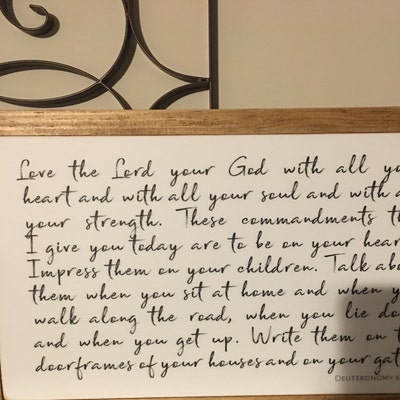 Love the Lord your God with all yo
heart and with all your soul and with a
your strength. These commandments th
I give you today are to be on your hear
Impress them on your children. Talk abo
them when you sit at home and when y
walk along the road, when you lie do
and when you get up. Write them on t
doorframes of your houses and on your gat
DEUTERONOMY